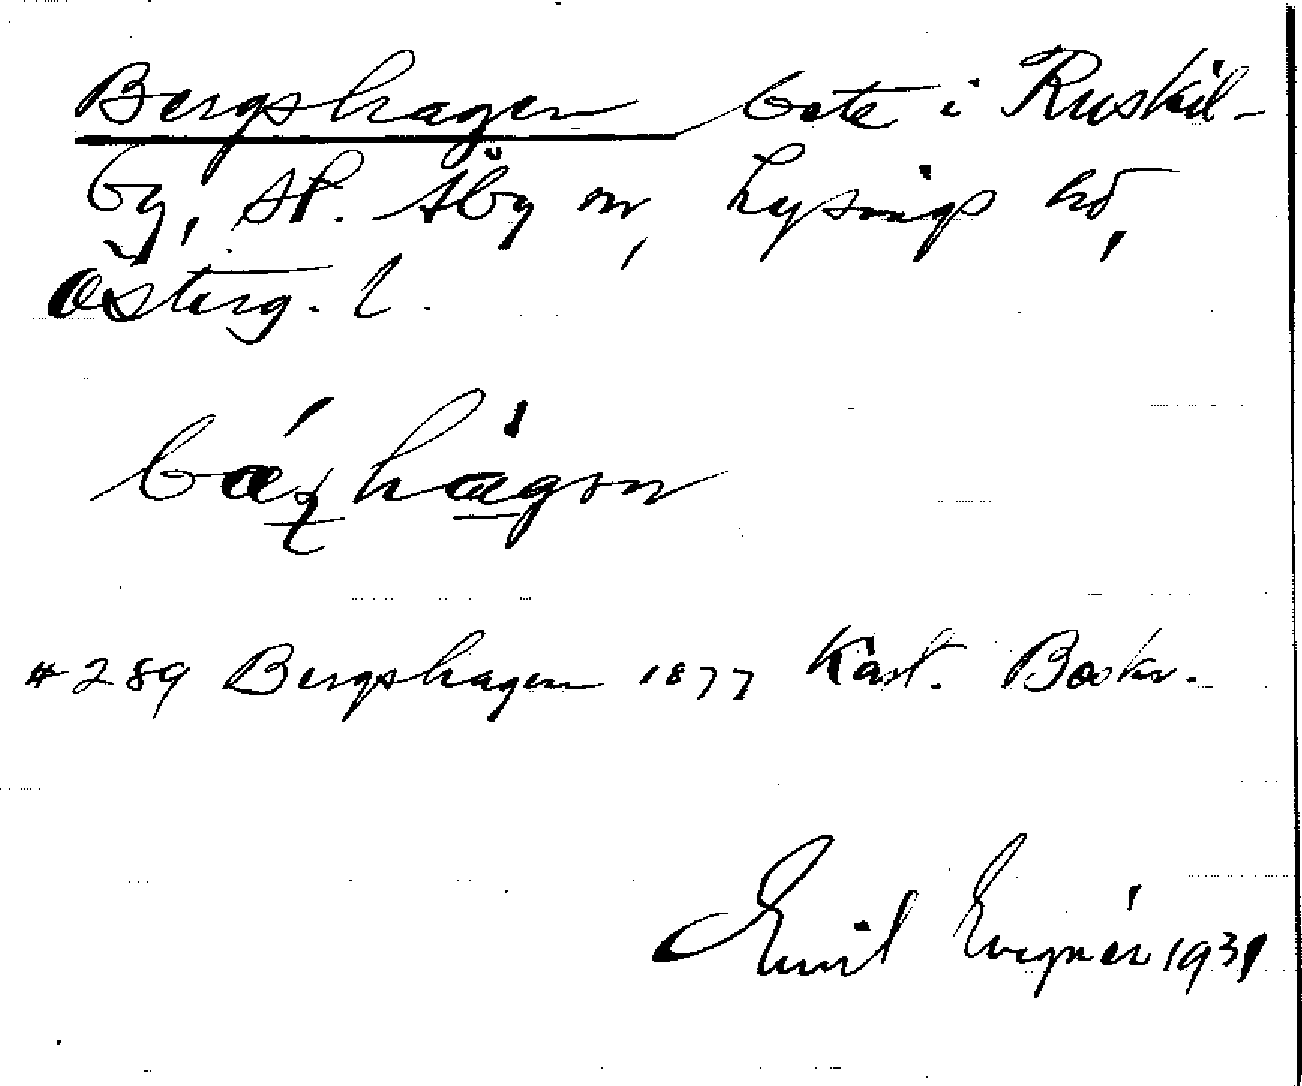 Bergshagen bete i Ruskil-
by, St. Åby sn, Lysings hd,
Österg. l.
bæ̀ʂhàgən
# 289 Bergshagen 1877 Kart. Beskr.
Emil 1931